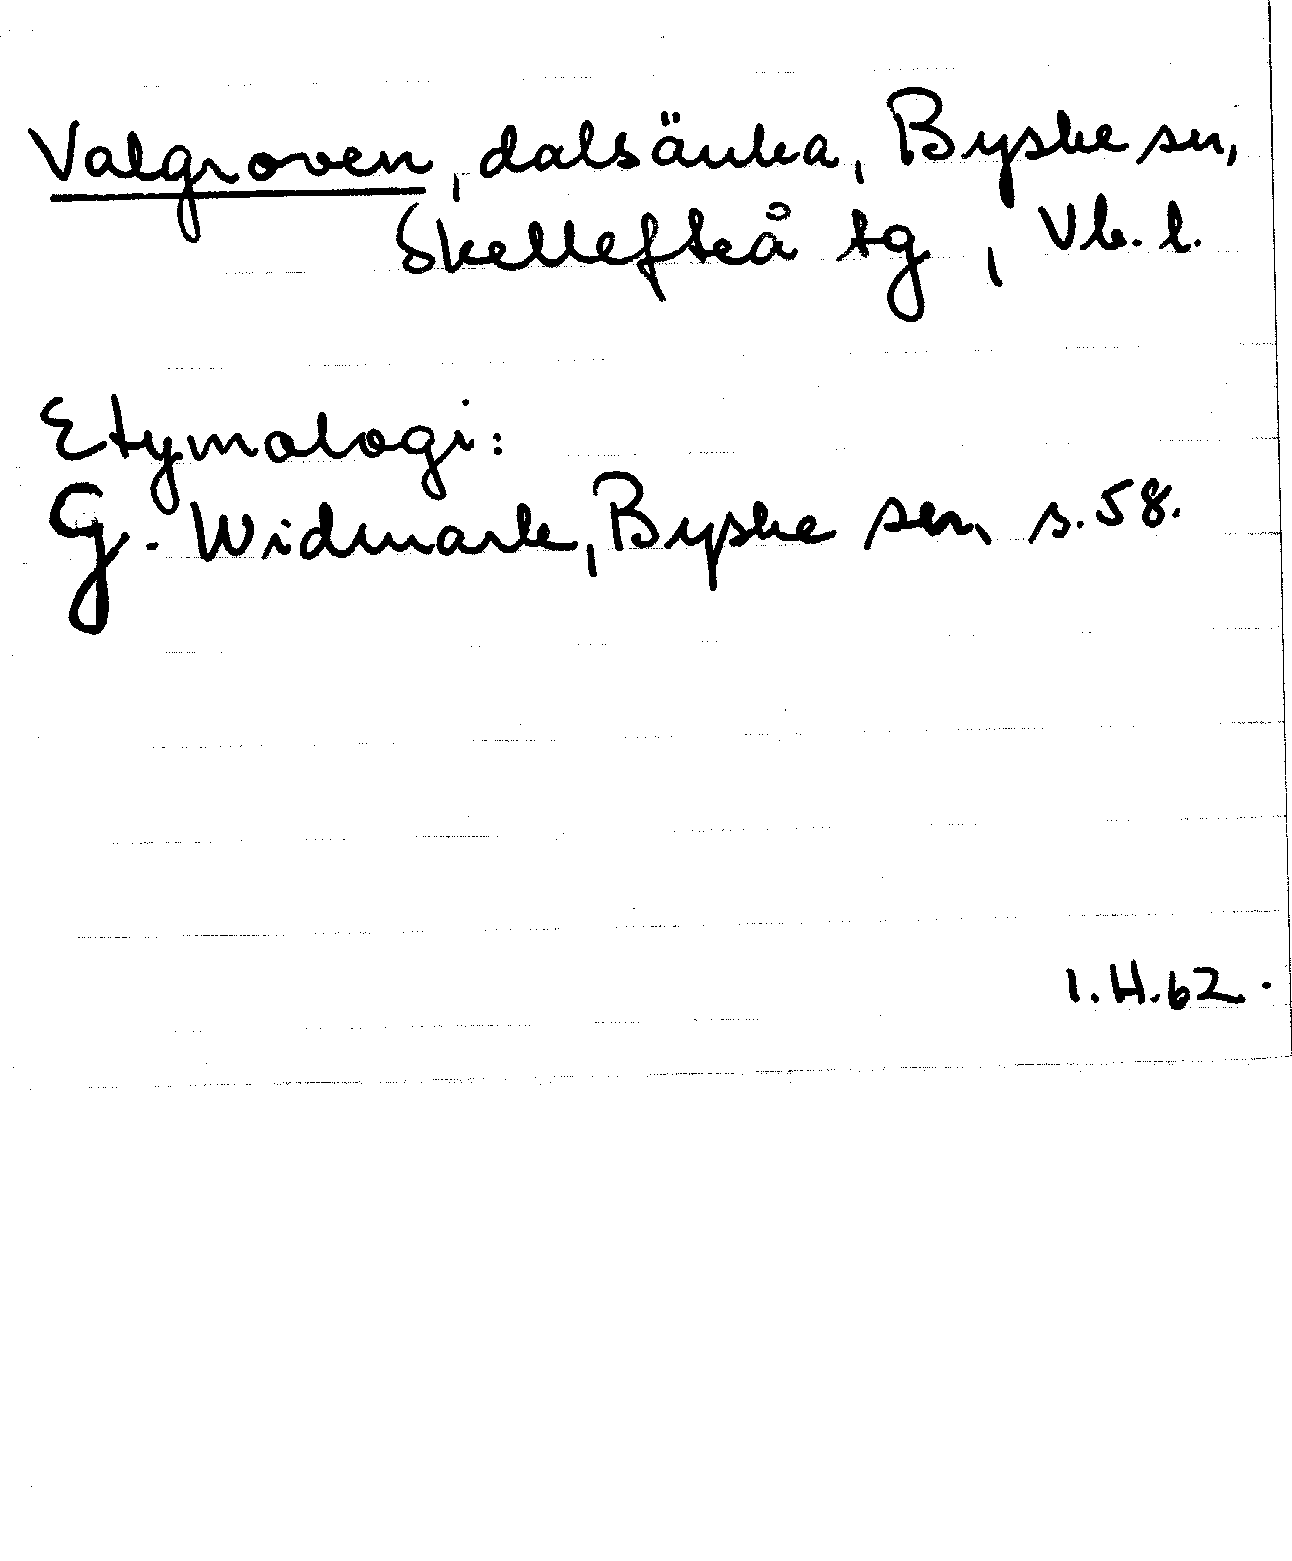 Valgroven, dalsänka, Byske sn,
Skellefteå tg, Vb. l.
Etymologi:
G. Widmark, Byske sn, s. 58.
I. H. 62.